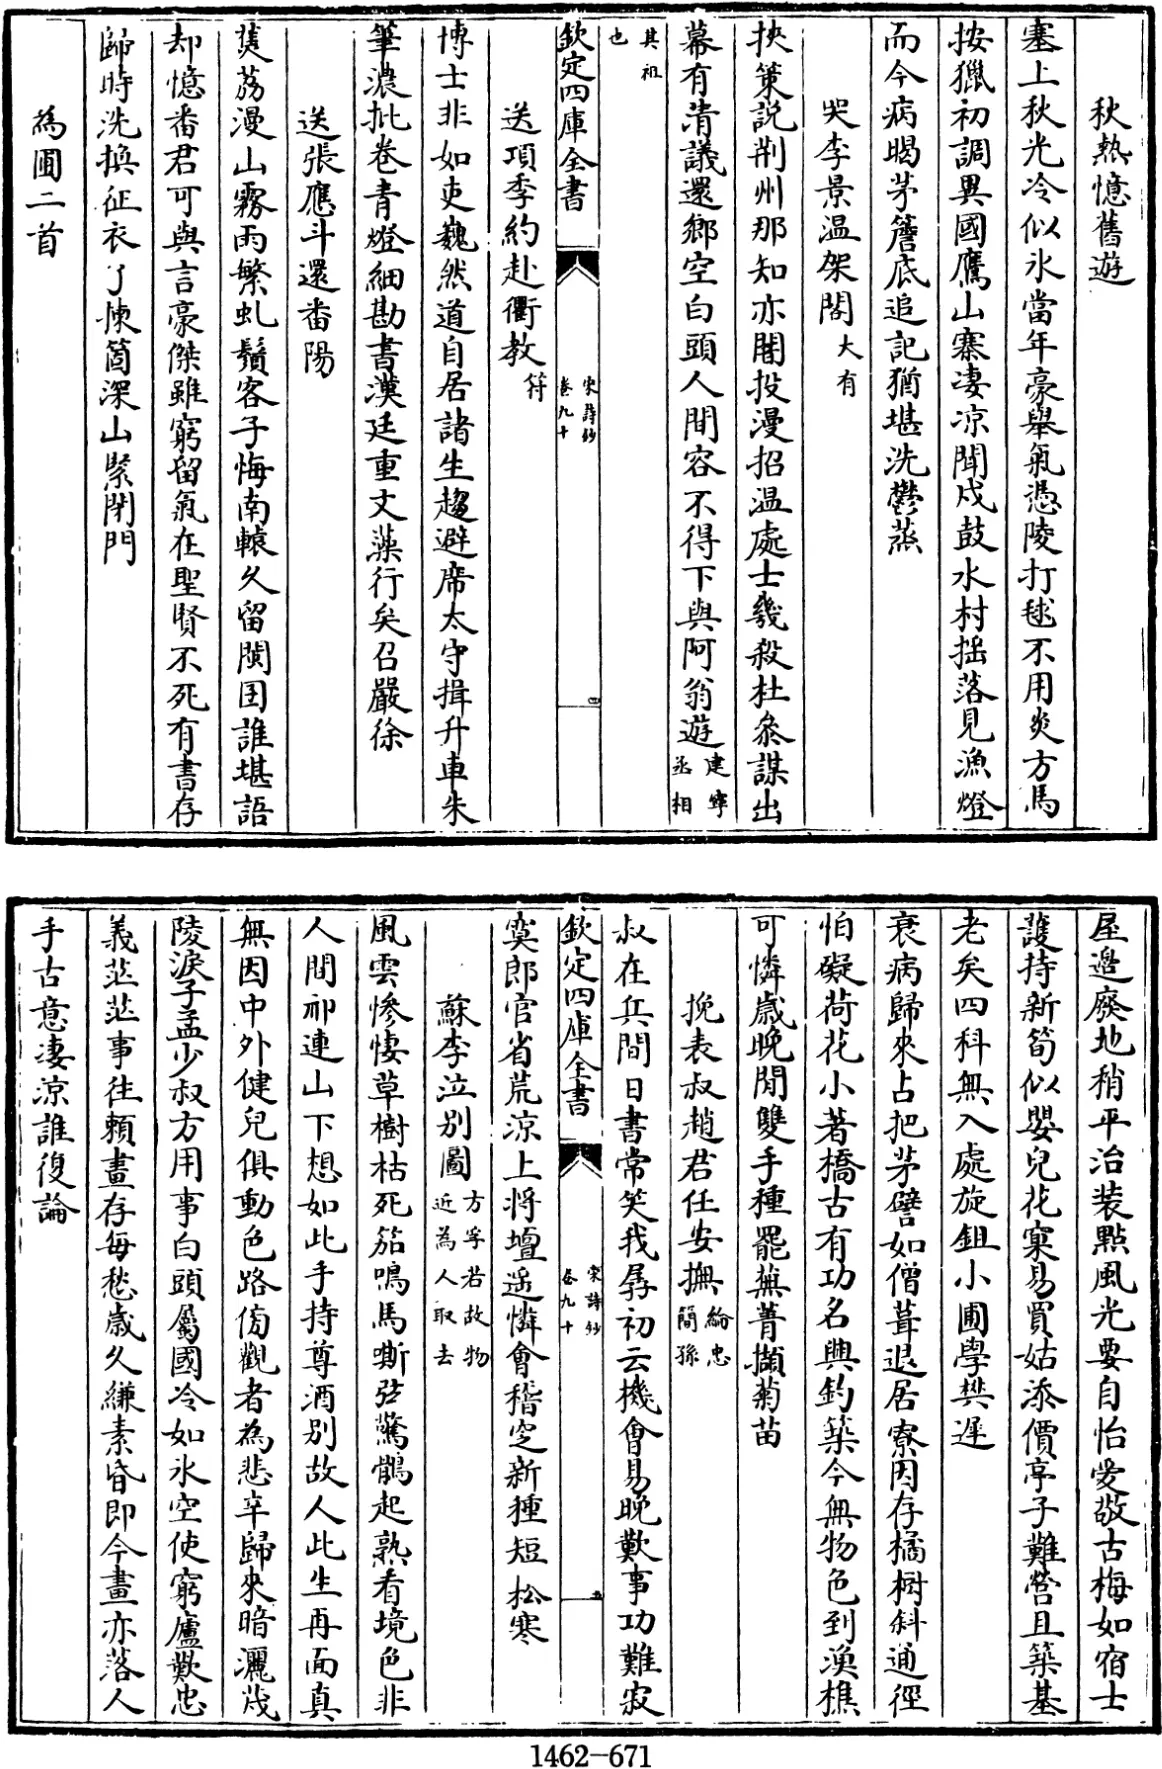 秋熱憶舊遊
塞上秋光冷似氷當年豪舉氣憑陵打毬不用炎方馬
按獵初調異國鷹山寨凄凉聞戍鼓水村揺落見漁燈
而今病暍茅簷底追記猶堪洗鬱蒸
哭李景温架閣大有
挾策説荆州那知亦闇投漫招温處士幾殺杜叅謀出
幕有清議還鄉空白頭人間容不得下與阿翁遊建寧丞相
其祖也
欽定四庫全書
宋詩鈔
卷九十
四
送項季約赴衢教符
博士非如吏巍然道自居諸生趨避席太守揖升車朱
筆濃批巻青燈細勘書漢廷重文藻行矣召嚴徐
送張應斗還番陽
蕉荔漫山霧雨繁虬鬚客子悔南轅久留閩囯誰堪語
却憶番君可與言豪傑雖窮留氣在聖賢不死有書存
歸時洗換征衣了揀箇深山緊閉門
為圃二首
屋邊廢地稍平治装點風光要自怡愛敬古梅如宿士
護持新筍似嬰兒花窠易買姑添價亭子難營且築基
老矣四科無入處旋鉏小圃學樊遲
衰病歸來占把茅譬如僧葺退居寮因存橘樹斜通徑
怕礙荷花小著橋古有功名興釣築今無物色到漁樵
可憐歳晚閒雙手種罷蕪菁擷菊苗
挽表叔趙君任安撫綸忠簡孫
叔在兵間日書常笑我孱初云機會易晚歎事功難寂
欽定四庫全書
宋詩鈔
卷九十
五
寞郎官省荒凉上將壇遥憐會稽窆新種短松寒
蘇李泣別圖方孚若故物近為人取去
風雲慘悽草樹枯死笳鳴馬嘶弦驚鶻起熟看境色非
人間祁連山下想如此手持尊酒別故人此生再面真
無因中外健兒俱動色路傍觀者為悲辛歸來暗灑茂
陵淚子孟少叔方用事白頭屬國冷如氷空使窮廬歎忠
義茫茫事往頼畫存每愁歳久縑素昏即今畫亦落人
手古意凄凉誰復論
1462-671